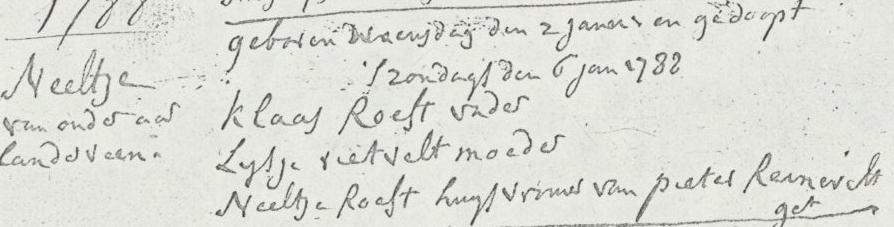 1788
geboren Woensdag den 2 Januar en gedoopt
Neeltje
's zondags den 6 Jan 1788
van onder aar
Klaas Roest vader
landerveen.
Lysje rietvelt moeder
Neeltje Roest huysvrouw van pieter
get